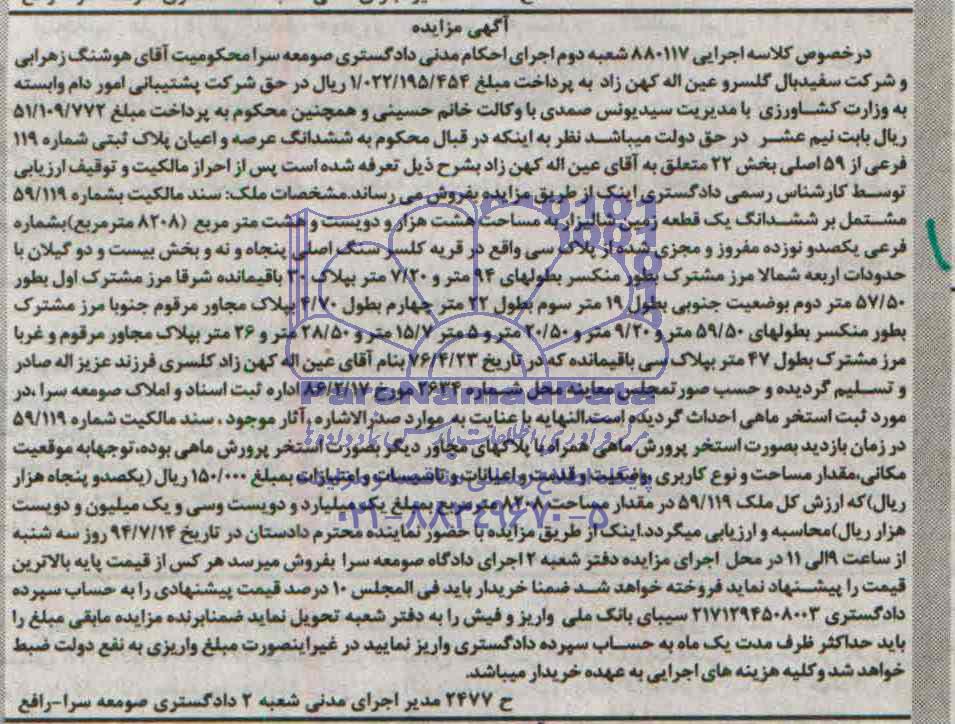 آگهی مزایده
درخصوص کلاسه اجرایی ۸۸۰۱۱۷ شعبه دوم اجرای احکام مدنی دادگستری صومعه سرا محکومیت آقای هوشنگ زهرابی
و شرکت سفیدبال گلسرو عین اله کهن زاد به پرداخت مبلغ ۱/۰۲۲/۱۹۵/۴۵۴ ریال در حق شرکت پشتیبانی امور دام وابسته
به وزارت کشاورزی با مدیریت سیدیونس صمدی با وکالت خانم حسینی و همچنین محکوم به پرداخت مبلغ ۵۱/۱۰۹/۷۷۲
ریال بابت نیم عشر در حق دولت میباشد نظر به اینکه در قبال محکوم به ششدانگ عرصه و اعیان پلاک ثبتی شماره ۱۱۹
فرعی از ۵۹ اصلی بخش ۲۲ متعلق به آقای عین اله کهن زاد بشرح ذیل تعرفه شده است پس از احراز مالکیت و توقیف ارزیابی
توسط کارشناس رسمی دادگستری اینک از طریق مزایده بفروش می رساند.مشخصات ملک: سند مالکیت بشماره ۵۹/۱۱۹
مشتمل بر ششدانگ یک قطعه زمین شالیزار به مساحت هشت هزار و دویست و هشت متر مربع (۸۲۰۸ مترمربع)بشماره
فرعی یکصدو نوزده مفروز و مجزی شده از پلاک سی واقع در قریه کلسر سنگ اصلی پنجاه و نه و بخش بیست و دو گیلان با
حدودات اربعه شمالا مرز مشترک بطور منکسر بطولهای ۹۴ متر و ۷/۲۰ متر بپلاک ۳۰ باقیمانده شرقا مرز مشترک اول بطور
۵۷/۵۰ متر دوم بوضعیت جنوبی بطول ۱۹ متر سوم بطول ۲۲ متر چهارم بطول ۴/۷۰ بپلاک مجاور مرقوم جنوبا مرز مشترک
بطور منکسر بطولهای ۵۹/۵۰ متر و ۹/۲۰ متر و ۲۰/۵۰ متر و ۵ متر و ۱۵/۷ متر و ۲۸/۵۰ متر و ۲۶ متر بپلاک مجاور مرقوم و غربا
مرز مشترک بطول ۴۷ متر بپلاک سی باقیمانده که در تاریخ ۷۶/۴/۲۳ بنام آقای عین اله کهن زاد کلسری فرزند عزیز اله صادر
و تسلیم گردیده و حسب صورتمجلس معاینه محل شماره ۲۶۳۴ مورخ ۸۶/۲/۱۷ اداره ثبت اسناد و املاک صومعه سرا ،در
مورد ثبت استخر ماهی احداث گردیده است.النهایه با عنایت به موارد صدرالاشاره ،آثار موجود ، سند مالکیت شماره ۵۹/۱۱۹
در زمان بازدید بصورت استخر پرورش ماهی همراه با پلاکهای مجاور دیگر بصورت استخر پرورش ماهی بوده،توجهابه موقعیت
مکانی،مقدار مساحت و نوع کاربری وضعیت و قدمت و اعیانات و تاسیسات و امتیازات بمبلغ ۱۵۰/۰۰۰ ریال (یکصدو پنجاه هزار
ریال)که ارزش کل ملک ۵۹/۱۱۹ در مقدار مساحت ۸۲۰۸ مترمربع بمبلغ یک میلیارد و دویست وسی و یک میلیون و دویست
هزار ریال)محاسبه و ارزیابی میگردد.اینک از طریق مزایده با حضور نماینده محترم دادستان در تاریخ ۹۴/۷/۱۴ روز سه شنبه
از ساعت ۹الی ۱۱ در محل اجرای مزایده دفتر شعبه ۲ اجرای دادگاه صومعه سرا بفروش میرسد هر کس از قیمت پایه بالاترین
قیمت را پیشنهاد نماید فروخته خواهد شد ضمنا خریدار باید فی المجلس ۱۰ درصد قیمت پیشنهادی را به حساب سپرده
دادگستری ۲۱۷۱۲۹۴۵۰۸۰۰۳ سیبای بانک ملی واریز و فیش را به دفتر شعبه تحویل نماید ضمنابرنده مزایده مابقی مبلغ را
باید حداکثر ظرف مدت یک ماه به حساب سپرده دادگستری واریز نمایید در غیراینصورت مبلغ واریزی به نفع دولت ضبط
خواهد شد وکلیه هزینه های اجرایی به عهده خریدار میباشد.
ح ۲۴۷۷ مدیر اجرای مدنی شعبه ۲ دادگستری صومعه سرا-رافع
ParsNamadData
۰۲۱-۸۸۳۴۹۶۷۰-۵